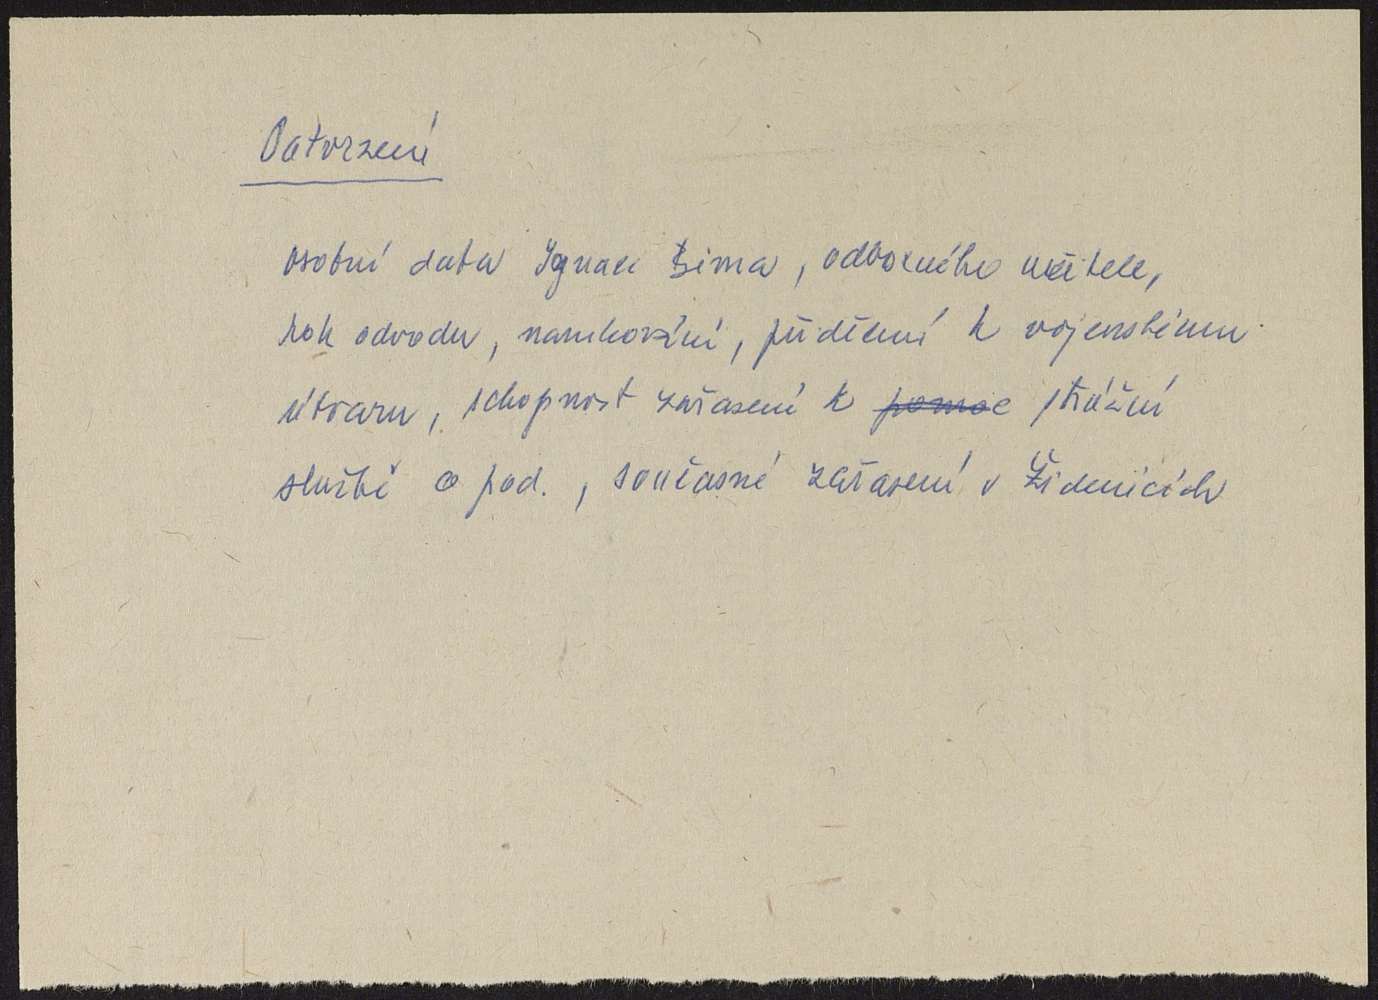 Potvrzení
osobní data Ignace Šima, odborného učitele,
rok odvodu, narukování, přidělení k vojenskému
útvaru, schopnost zařazení k pomoc strážní
službě a pod., současné zařazení v Židenicích